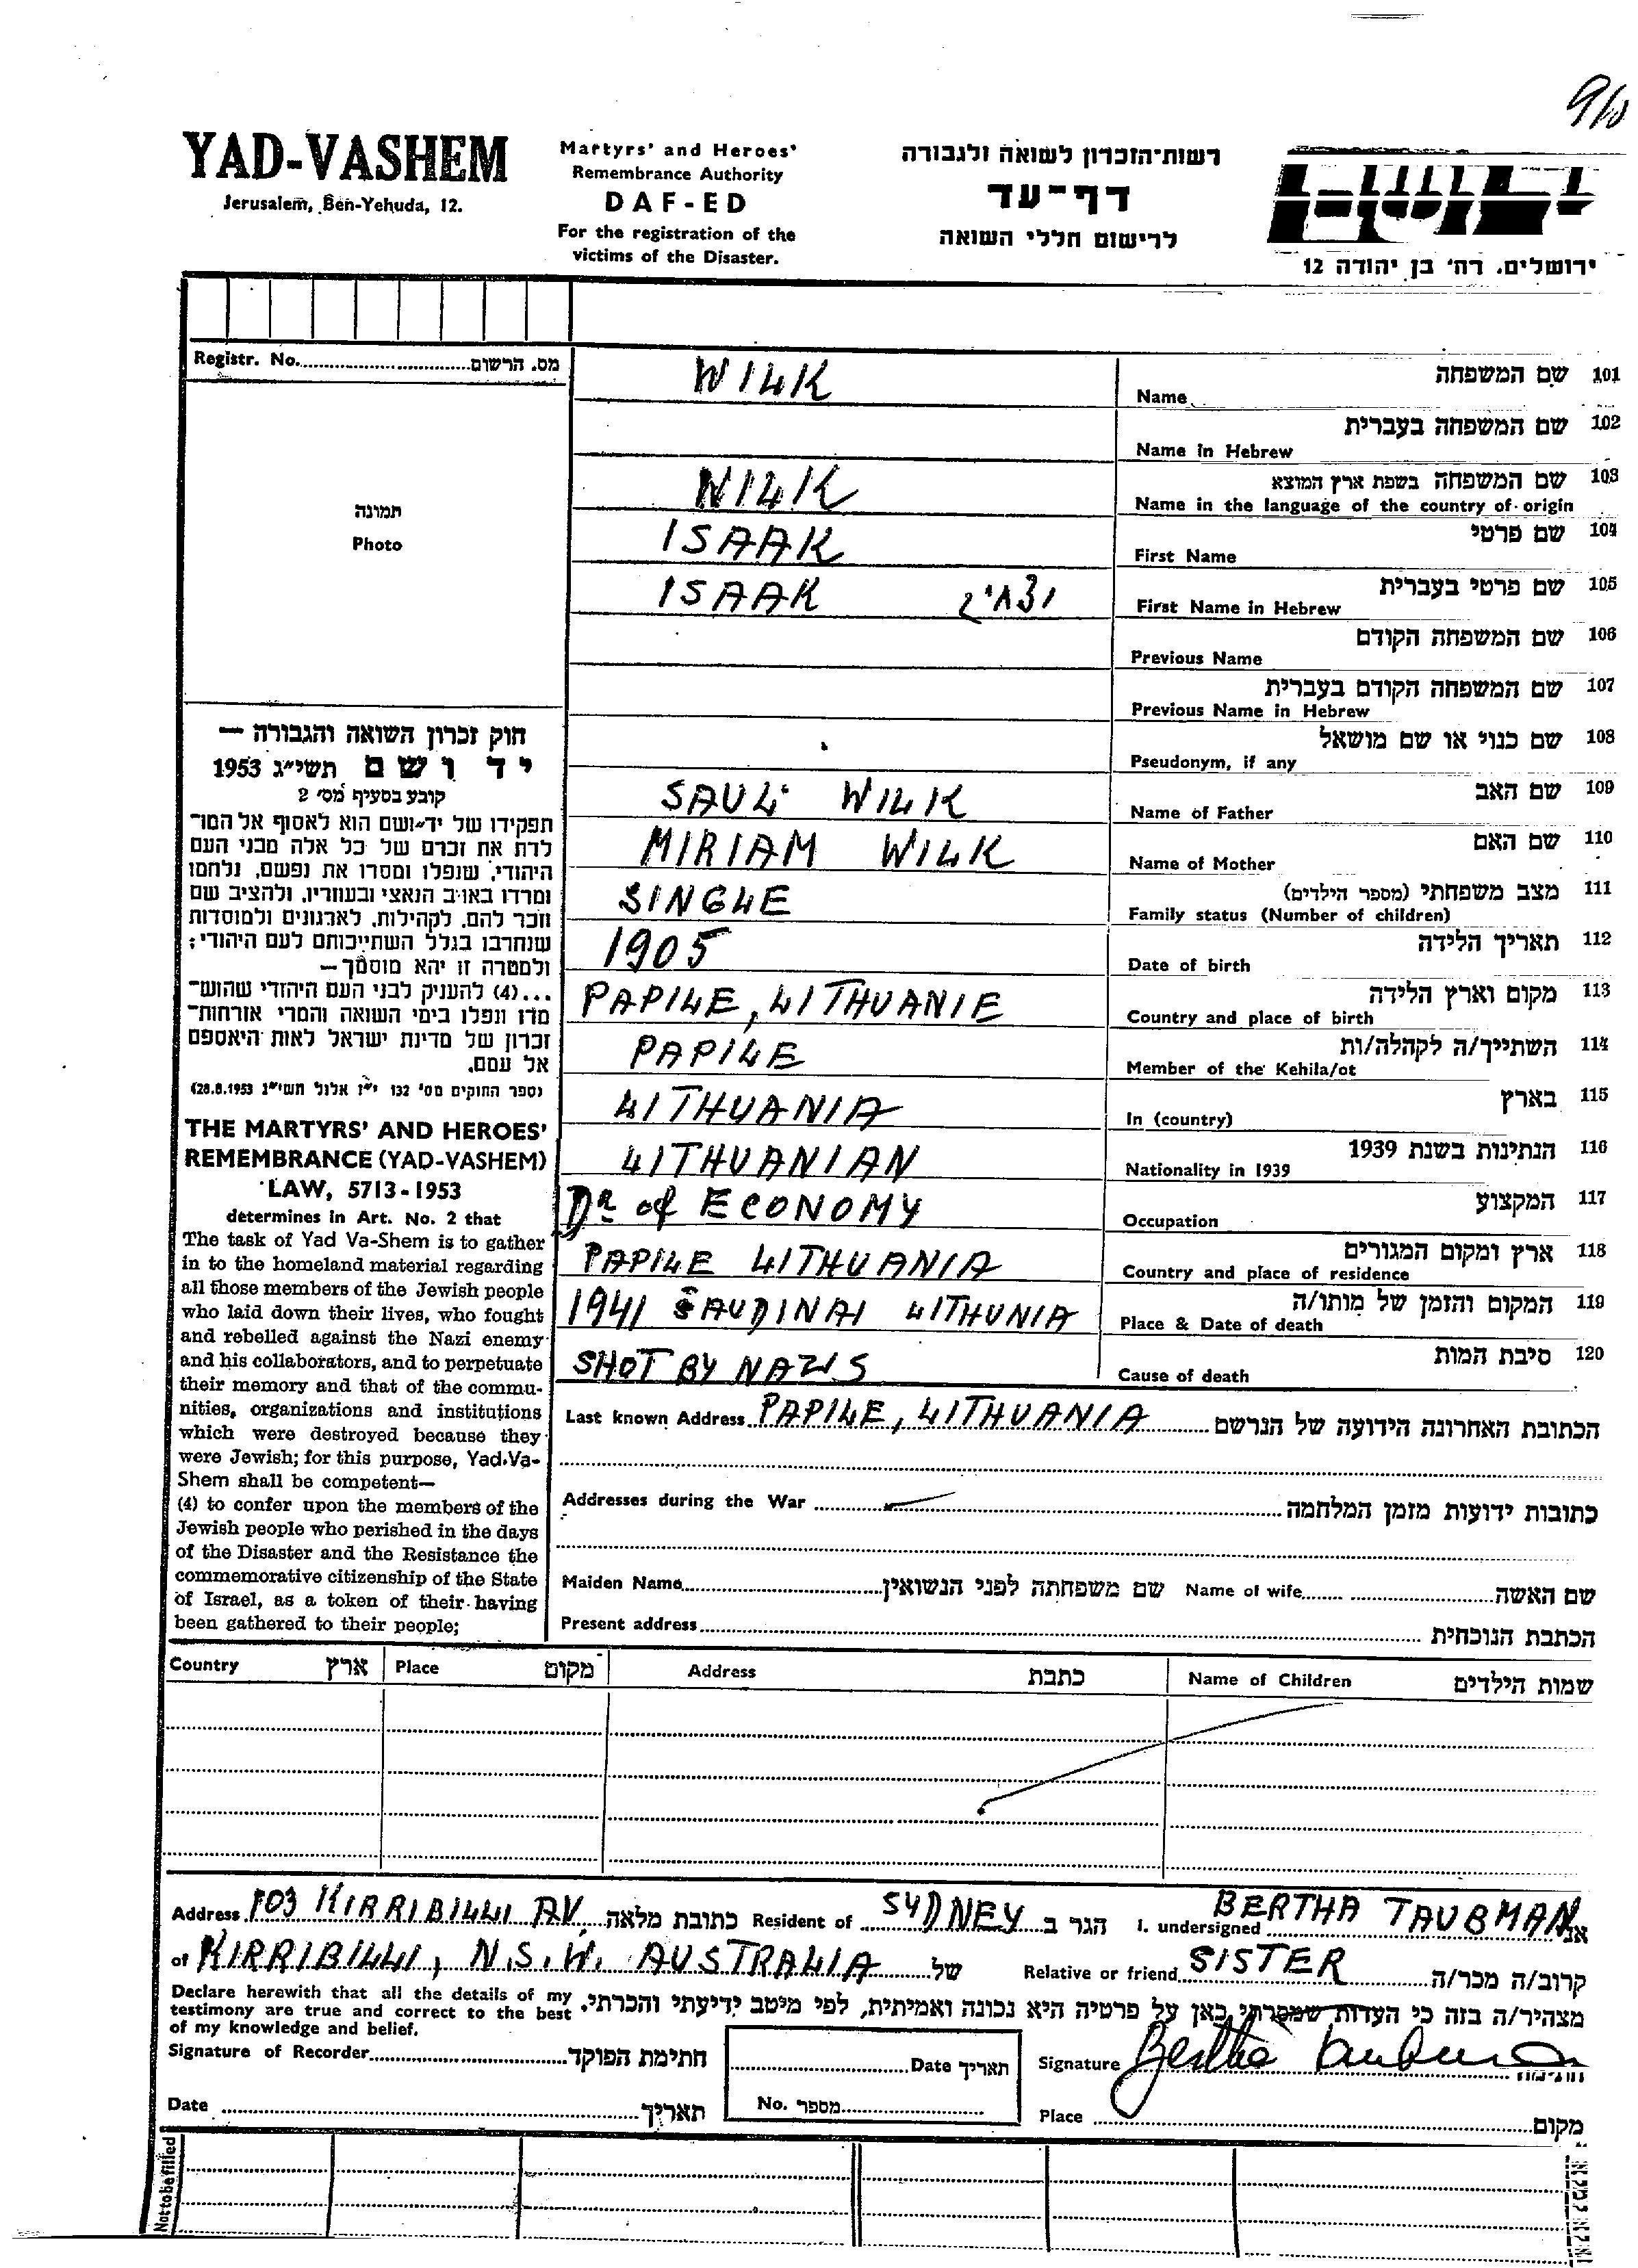 YAD-VASHEM
Jerusalem, Ben-Yehuda, 12.
Martyrs' and Heroes'
Remembrance Authority
DAF-ED
For the registration of the
victims of the Disaster.
רשות־הזכרון לשואה ולגבורה
דף־עד
לרישום חללי השואה
ירושלים, רח' בן יהודה 12
Registr. No. מס. הרשום
תמונה
Photo
WILK שם המשפחה 101
Name
שם המשפחה בעברית 102
Name in Hebrew
WILK שם המשפחה בשפת ארץ המוצא 103
Name in the language of the country of origin
ISAAK שם פרטי 104
First Name
ISAAK שם פרטי בעברית 105
First Name in Hebrew
שם המשפחה הקודם 106
Previous Name
שם המשפחה הקודם בעברית 107
Previous Name in Hebrew
שם כנוי או שם מושאל 108
Pseudonym, if any
SAUL WILK שם האב 109
Name of Father
MIRIAM WILK שם האם 110
Name of Mother
SINGLE מצב משפחתי (מספר הילדים) 111
Family status (Number of children)
1905 תאריך הלידה 112
Date of birth
PAPILE, LITHUANIE מקום וארץ הלידה 113
Country and place of birth
PAPILE השתייך/ה לקהלה/ות 114
Member of the Kehila/ot
LITHUANIA בארץ 115
In (country)
LITHUANIAN הנתינות בשנת 1939 116
Nationality in 1939
Dr of ECONOMY המקצוע 117
Occupation
PAPILE LITHUANIA ארץ ומקום המגורים 118
Country and place of residence
1941 ŠAUDINAI LITHUNIA המקום והזמן של מותו/ה 119
Place & Date of death
SHOT BY NAZIS סיבת המות 120
Cause of death
חוק זכרון השואה והגבורה —
יד ושם תשי״ג 1953
קובע בסעיף מס' 2
תפקידו של יד־ושם הוא לאסוף אל המו־
לדת את זכרם של כל אלה מבני העם
היהודי, שנפלו ומסרו את נפשם, נלחמו
ומרדו באויב הנאצי ובעוזריו, ולהציב שם
וזכר להם, לקהילות, לארגונים ולמוסדות
שנחרבו בגלל השתייכותם לעם היהודי;
ולמטרה זו יהא מוסמך—
...(4) להעניק לבני העם היהודי שהוש־
מדו ונפלו בימי השואה והמרי אזרחות־
זכרון של מדינת ישראל לאות היאספם
אל עמם.
(ספר החוקים מס' 132 י״ז אלול תשי״ג 28.8.1953)
THE MARTYRS' AND HEROES'
REMEMBRANCE (YAD-VASHEM)
LAW, 5713-1953
determines in Art. No. 2 that
The task of Yad Va-Shem is to gather
in to the homeland material regarding
all those members of the Jewish people
who laid down their lives, who fought
and rebelled against the Nazi enemy
and his collaborators, and to perpetuate
their memory and that of the commu-
nities, organizations and institutions
which were destroyed because they
were Jewish; for this purpose, Yad-Va-
Shem shall be competent—
(4) to confer upon the members of the
Jewish people who perished in the days
of the Disaster and the Resistance the
commemorative citizenship of the State
of Israel, as a token of their having
been gathered to their people;
Last known Address PAPILE, LITHUANIA הכתובת האחרונה הידועה של הנרשם
Addresses during the War כתובות ידועות מזמן המלחמה
Maiden Name שם משפחתה לפני הנשואין Name of wife שם האשה
Present address הכתבת הנוכחית
Country ארץ Place מקום Address כתבת Name of Children שמות הילדים
Address 103 KIRRIBILLI AV. כתובת מלאה Resident of SYDNEY הגר ב I. undersigned BERTHA TAUBMAN אני
of KIRRIBILLI, N.S.W. AUSTRALIA של Relative or friend SISTER קרוב/ה מכר/ה
Declare herewith that all the details of my
testimony are true and correct to the best
of my knowledge and belief.
מצהיר/ה בזה כי העדות שמסרתי כאן על פרטיה היא נכונה ואמיתית, לפי מיטב ידיעתי והכרתי.
Signature of Recorder חתימת הפוקד Date תאריך Signature Bertha Taubman חתימה
Date תאריך No. מספר Place מקום
Not to be filled